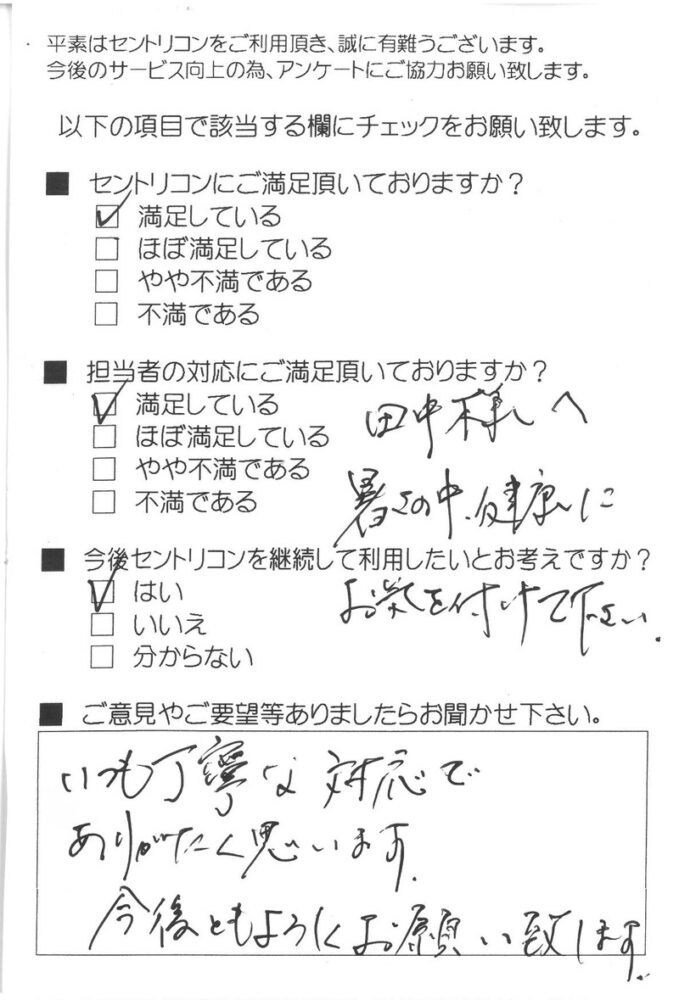 平素はセントリコンをご利用頂き、誠に有難うございます。
今後のサービス向上の為、アンケートにご協力お願い致します。
以下の項目で該当する欄にチェックをお願い致します。
■ セントリコンにご満足頂いておりますか？
☑ 満足している
□ ほぼ満足している
□ やや不満である
□ 不満である
■ 担当者の対応にご満足頂いておりますか？
☑ 満足している
□ ほぼ満足している
□ やや不満である
□ 不満である
田中様へ
暑さの中、健康に
お気を付けて下さい.
■ 今後セントリコンを継続して利用したいとお考えですか？
☑ はい
□ いいえ
□ 分からない
■ ご意見やご要望等ありましたらお聞かせ下さい。
いつも丁寧な対応で
ありがたく思います.
今後ともよろしくお願い致します.